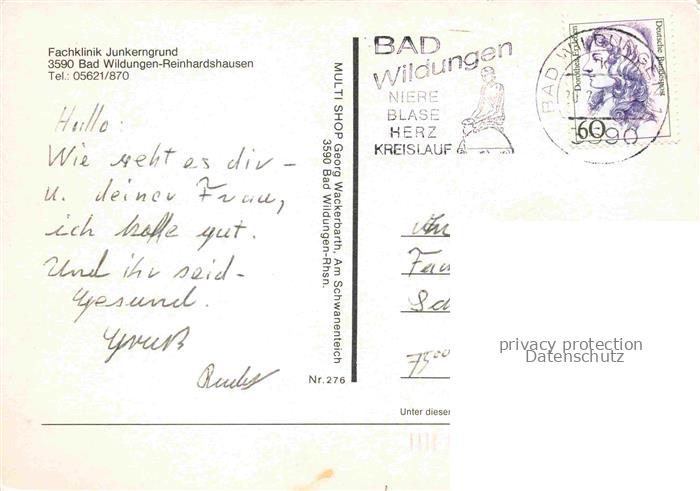 Fachklinik Junkerngrund
3590 Bad Wildungen-Reinhardshausen
Tel.: 05621/870
Hallo:
Wie geht es dir -
u. deiner Frau,
ich hoffe gut.
Und ihr seid -
Gesund.
Gruß
MULTI SHOP Georg Wackerbarth, Am Schwanenteich
3590 Bad Wildungen-Rhsn.
Nr. 276
BAD
Wildungen
NIERE
BLASE
HERZ
KREISLAUF
BAD WILDUNGEN
3590
Deutsche Bundespost
60
An
Fa
7500
privacy protection
Datenschutz
Unter diesen